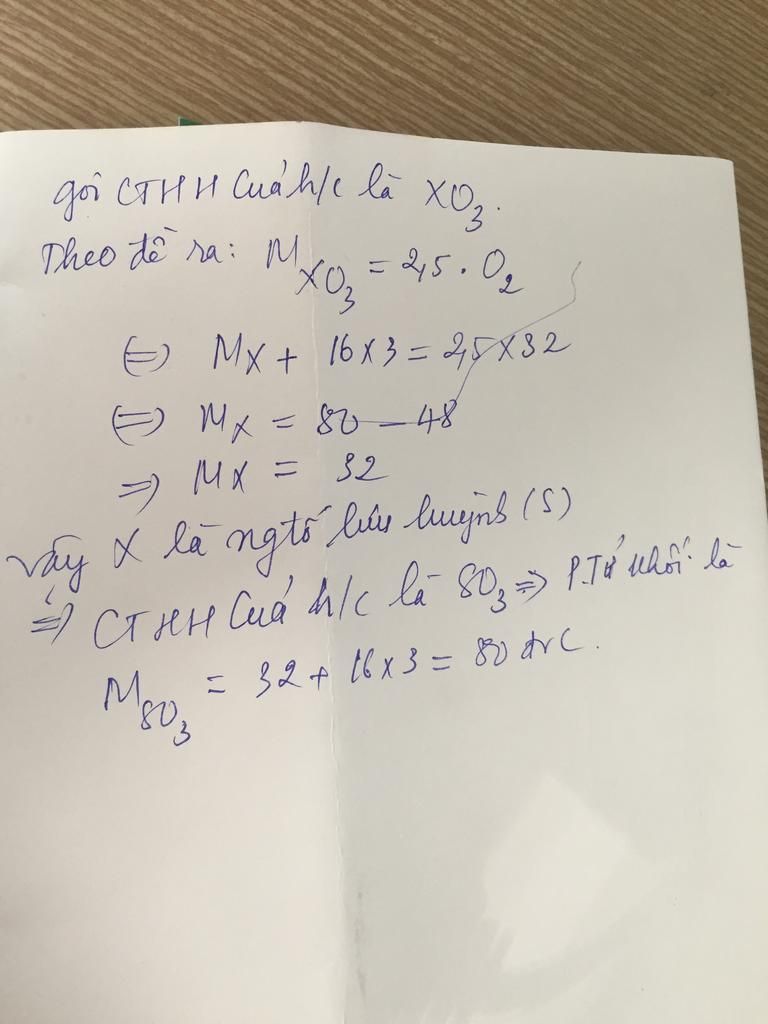 gọi CTHH Của h/c là XO₃.
Theo đề ra: M_XO₃ = 2,5 . O₂
(=) M_X + 16 x 3 = 2,5 x 32
(=) M_X = 80 - 48
=) M_X = 32
Vậy X là ngtố lưu huỳnh (S)
=) CTHH Của h/c là SO₃ => P.Tử khối là
M_SO₃ = 32 + 16 x 3 = 80 đvC.